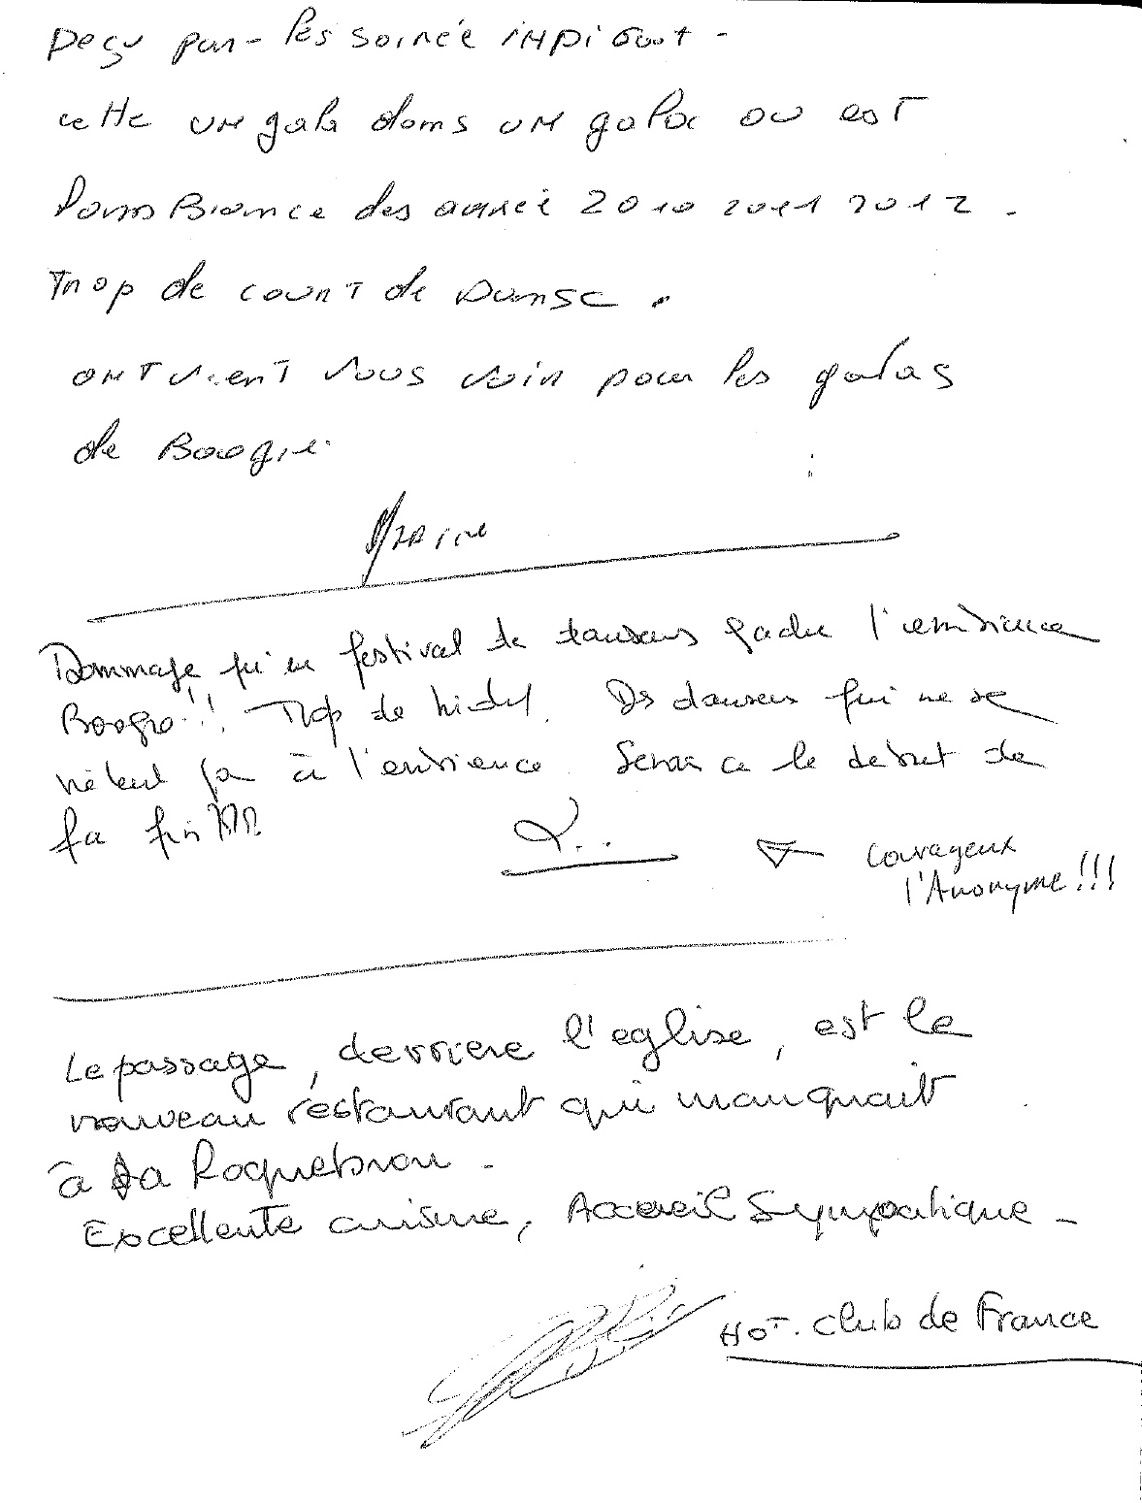 Deçu par les soirée INDIGOOT -
cette UN gala dams UN galac OU EST
l'amBiance des année 2010 2011 2012 .
Trop de count de DANSE .
ONT vient vous voir pour les galas
de Boogie.
Dommage qu'un festival de danseurs gache l'ambiance
Boogie !! Trop de . Ds danseurs qui ne se
mêlent pas à l'ambiance. Serais ce le debut de
la fin ???
Courageux
l'Anonyme !!!
Le passage, derriere l'eglise, est le
nouveau restaurant qui manquait
à La Roquebrou -
Excellente cuisine, Accueil Sympatique -
HOT. Club de France